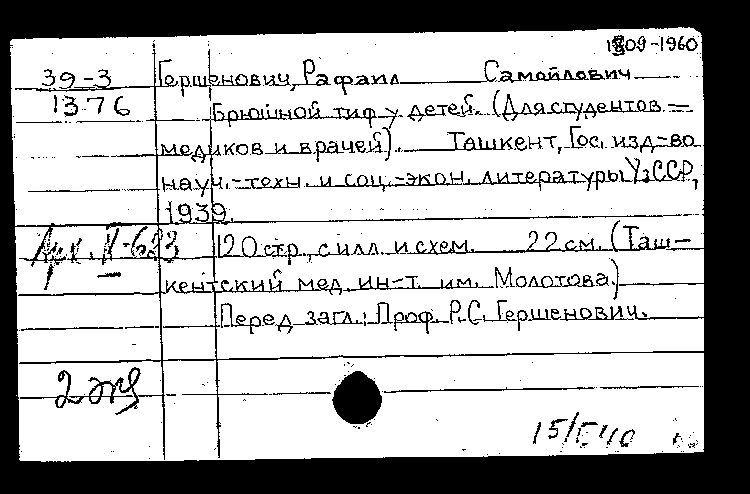 1809-1960
39-3 Гершенович, Рафаил Самойлович
1376 Брюшной тиф у детей. (Для студентов=
медиков и врачей). Ташкент, Гос. изд=во
науч.-техн. и соц.-экон. литературы УзССР,
1939.
Арх. II-623 120 стр., с илл. и схем. 22 см. (Таш-
кентский мед. ин-т им. Молотова.)
Перед загл.: Проф. Р.С. Гершенович.
2 экз